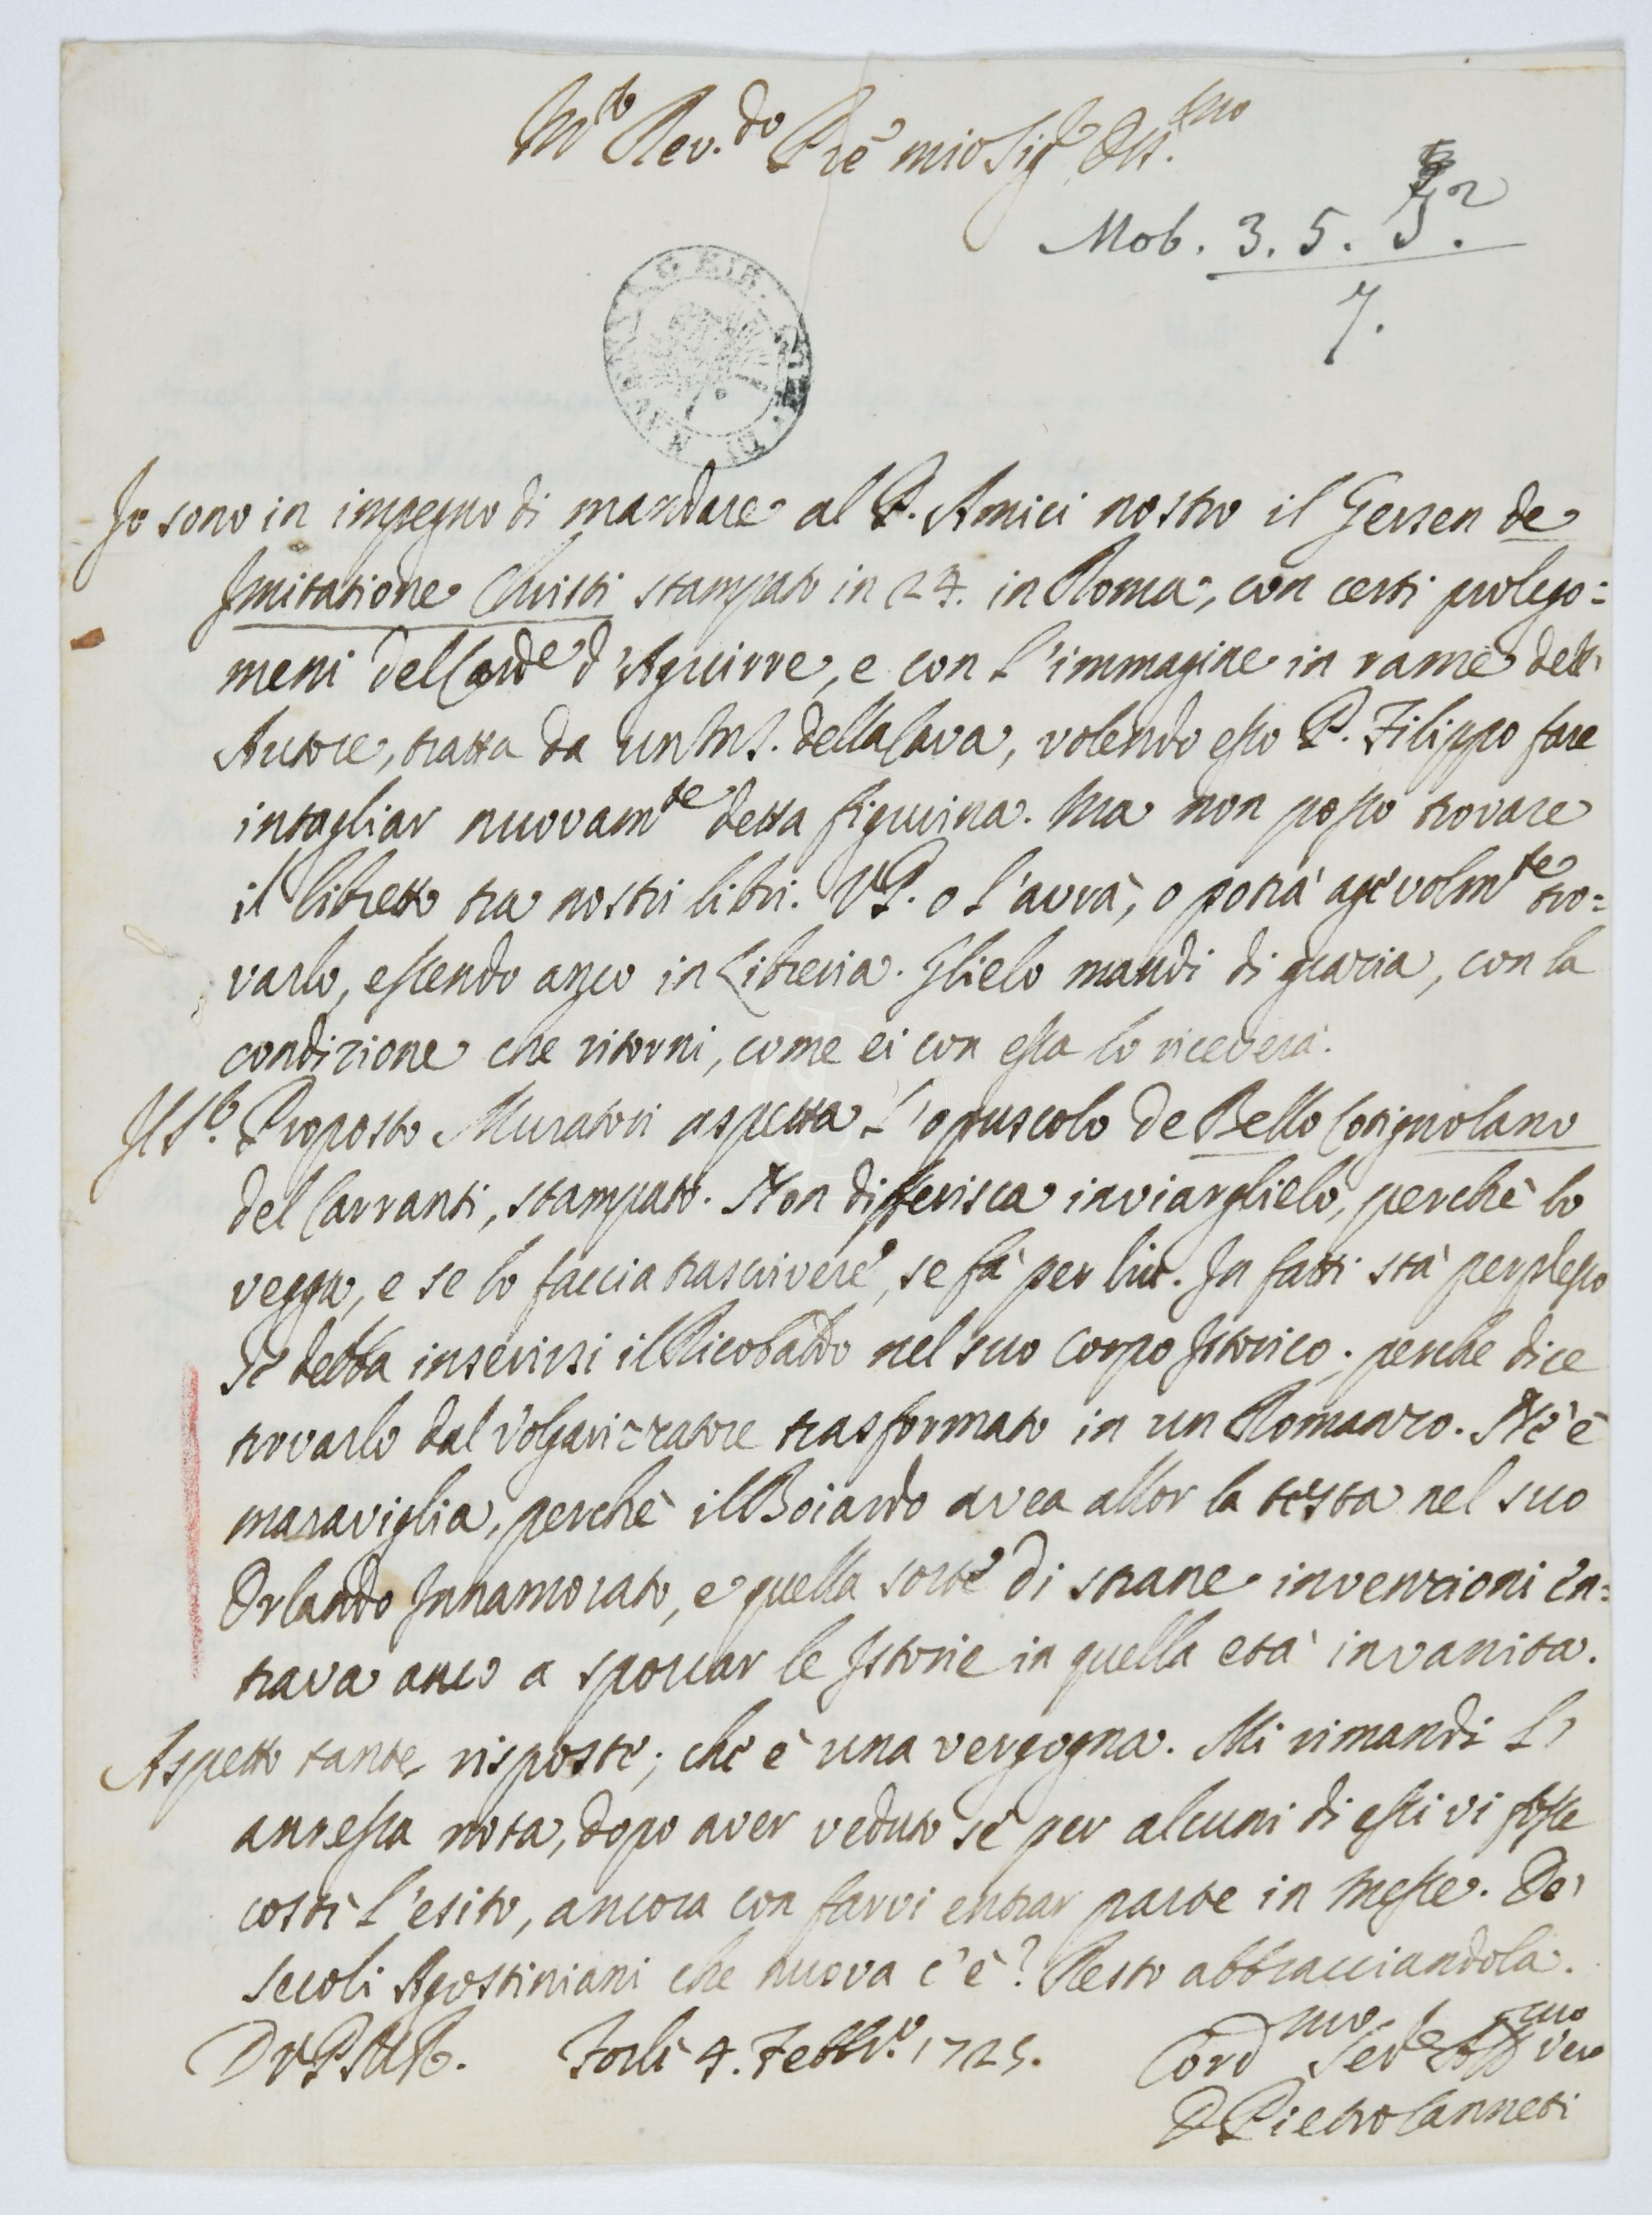 M.to Rev.do Pre mio Sig.r Oss.mo
Mob. 3. 5. I2.
7.
Io sono in impegno di mandare al P. Amici nostro il Gersen de
Imitatione Christi stampato in 24. in Roma, con certi prolego=
meni del Card.e d'Aguirre, e con l'immagine in rame dell'
Autore, tratta da un MS. della Cava, volendo esso P. Filippo fare
intagliar nuovam.te detta figurina. Ma non posso trovare
il libretto tra nostri libri. VP. o l'avrà, o potrà agevolm.te tro=
varlo, essendo anco in Libreria. Glielo mandi di grazia, con la
condizione che ritorni, come ei con essa lo riceverà.
Il S.r Proposto Muratori aspetta l'opuscolo de Bello Cotignolano
del Carranti, stampato. Non differisca inviarglielo, perchè lo
vegga, e se lo faccia trascrivere, se fà per lui. In fatti stà perplesso
se debba inserirsi il Ricobaldo nel suo Corpo Istorico; perche dice
trovarlo dal Volgarizzatore trasformato in un Romanzo. Nè è
maraviglia, perchè il Boiardo avea allor la testa nel suo
Orlando Innamorato, e quella sorte di strane invenzioni en=
trava anco a sporcar le Istorie in quella età invanita.
Aspetto tante risposte; che è una vergogna. Mi rimandi l'
annessa nota, dopo aver veduto se per alcuni di essi vi fosse
costì l'esito, ancora con farvi entrar parte in Messe. De'
secoli Agostiniani che nuova c'è? Resto abbracciandola.
D VP MR. Forlì 4. Febbr.o 1725.
Cord.mo Ser.e Obb.mo vero
D Pietro Canneti